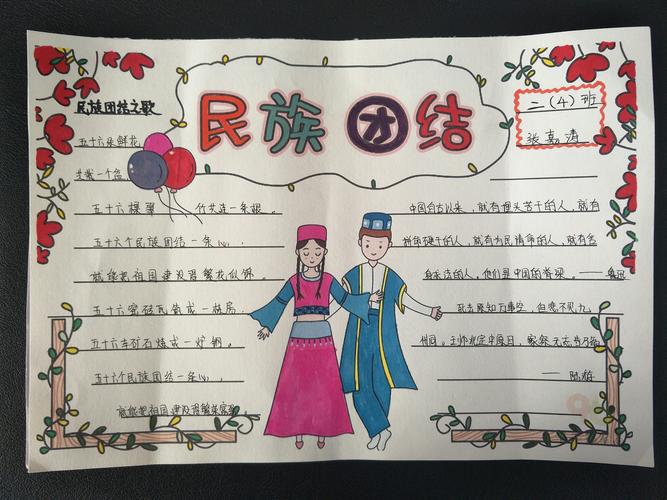 民族团结
民族团结之歌
五十六朵鲜花
共栽一个盆
五十六棵翠
竹共连一条根。
五十六个民族团结一条心，
就能把祖国建设得繁花似锦。
五十六窑砖瓦造成一栋房
五十六车矿石炼成一炉钢。
五十六个民族团结一条心，
就能把祖国建设得繁荣富强
二（4）班
张嘉涛
中国自古以来，就有埋头苦干的人，就有
拼命硬干的人，就有为民请命的人，就有舍
身求法的人，他们是中国的脊梁。——鲁迅
死去原知万事空，但悲不见九
州同。王师北定中原日，家祭无忘告乃翁
——陆游